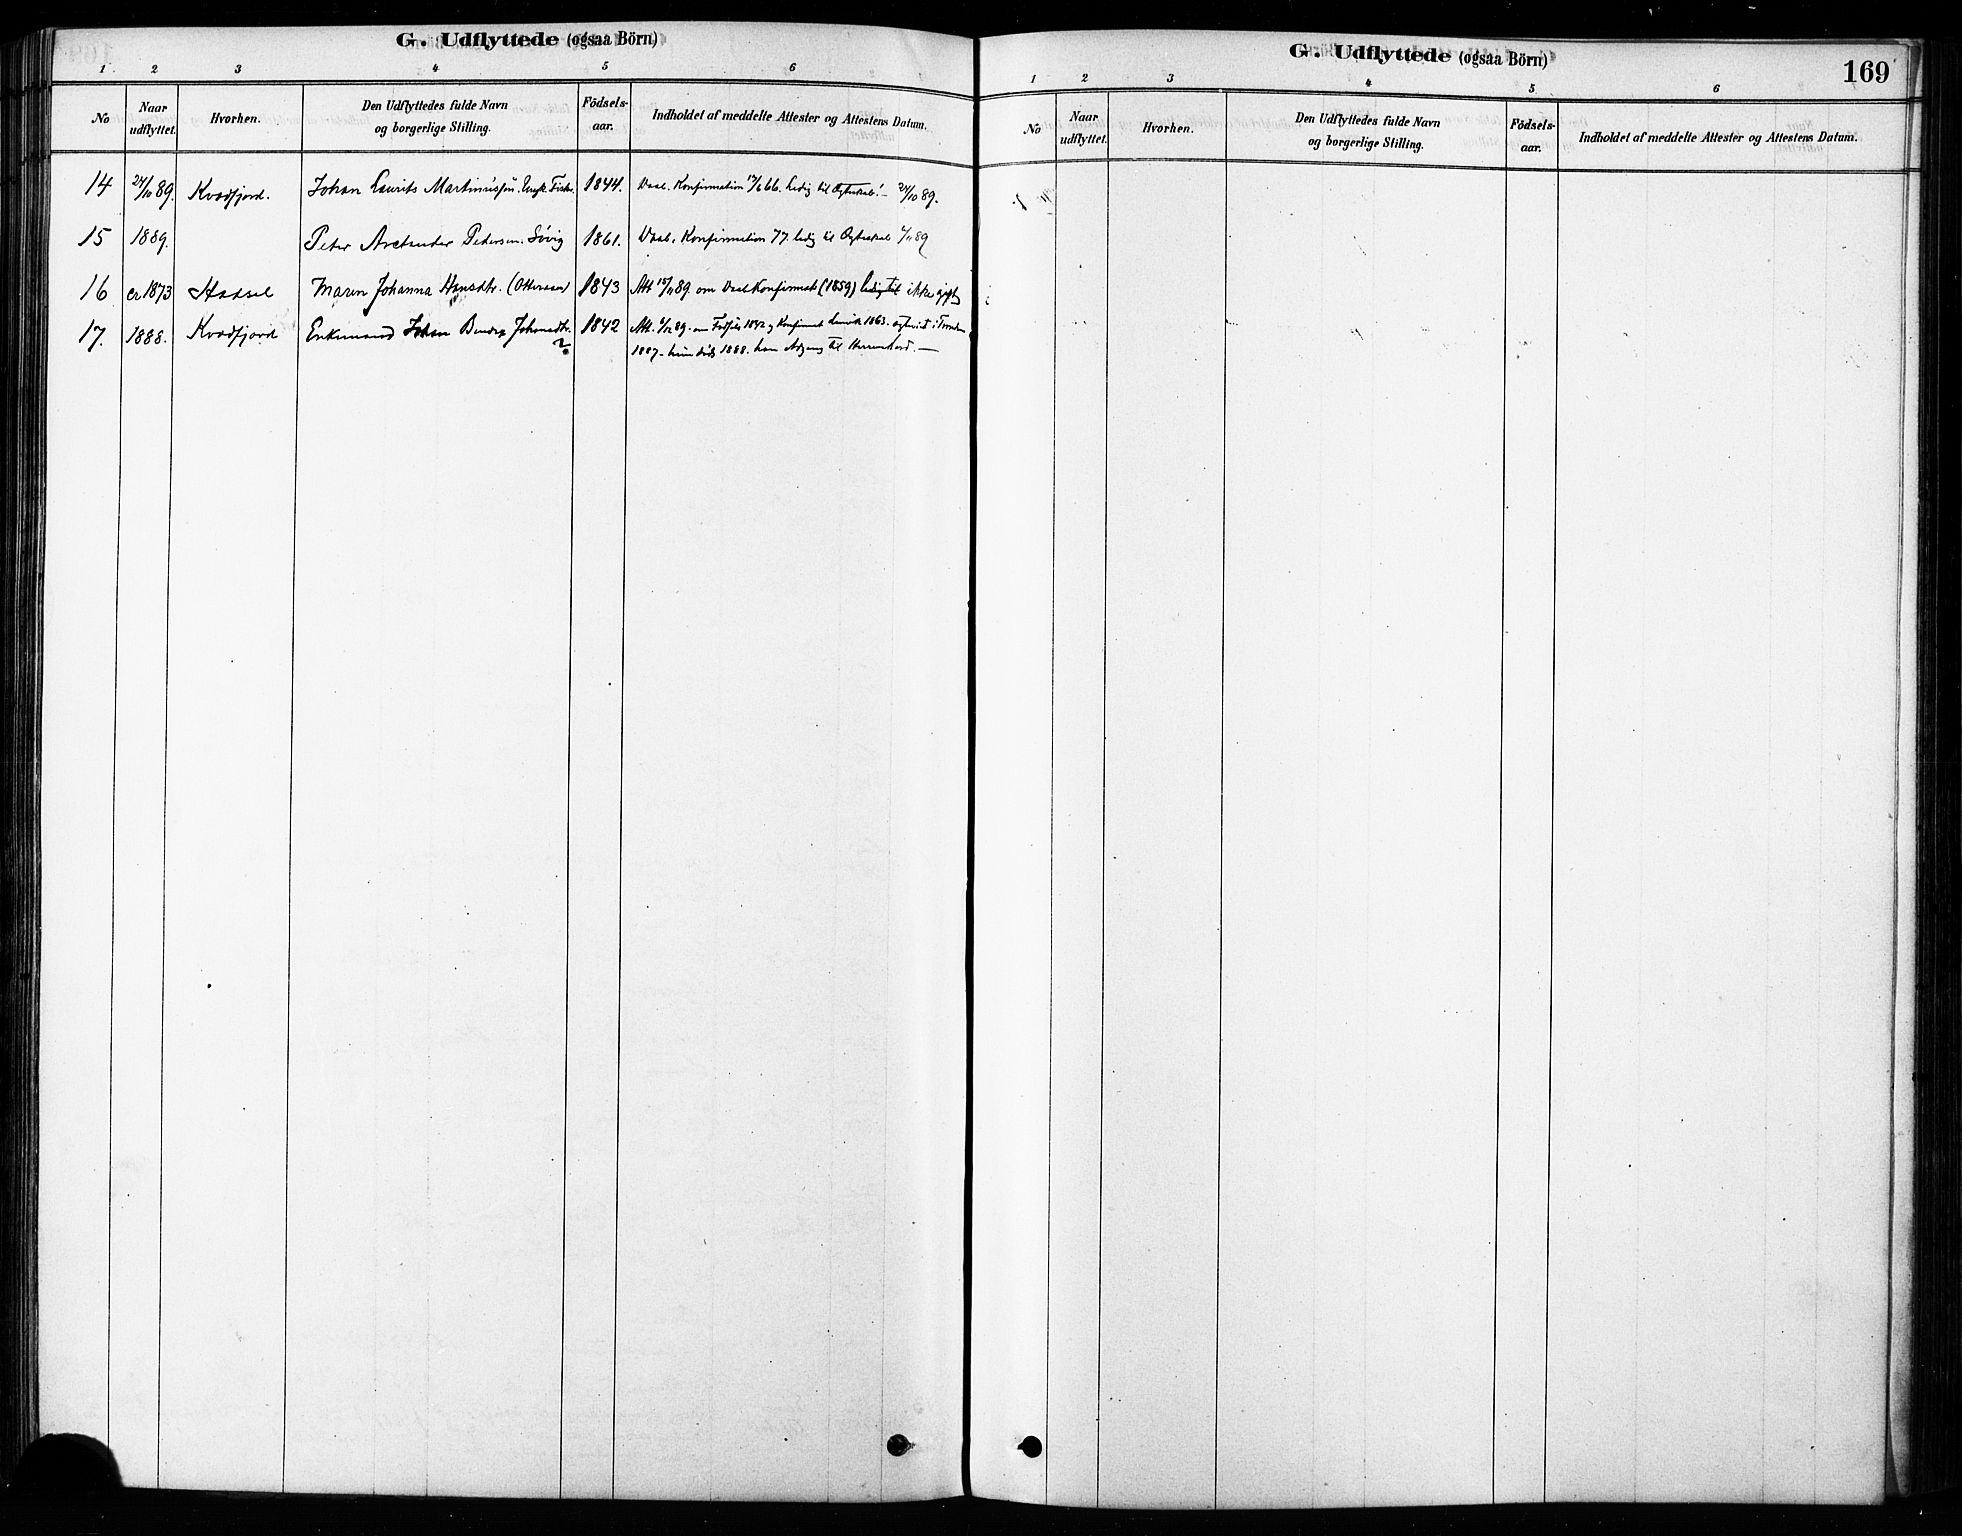 G. Udflyttede (ogsaa Börn)
1 2 3 4 5 6
No Naar udflyttet. Hvorhen. Den Udflyttedes fulde Navn og borgerlige Stilling. Födsels-aar. Indholdet af meddelte Attester og Attestens Datum.
14 24/10 89. Kvædfjord. Johan Laurits Martinussen. 1844. Vacc. Konfirmation 66. Ledig til Ægteskab! – 24/10 89.
15 1889. Peter Arctander Pedersen. Søvig 1861. Vacc. Konfirmation 77. ledig til Ægteskab 89
16 er 1873 Hadsel Maren Johanna Hansdtr. 1843 Att. 89 om Vacc Konfirmat. (1859) ledig til ikke gift
17. 1888. Kvædfjord Enkemand Johan 1842 Att. 89. om Fødsels 1842 og Konfirmat. 1863.
? 1887 – 1888. Adgang til
G. Udflyttede (ogsaa Börn)
169
1 2 3 4 5 6
No Naar udflyttet. Hvorhen. Den Udflyttedes fulde Navn og borgerlige Stilling. Födsels-aar. Indholdet af meddelte Attester og Attestens Datum.